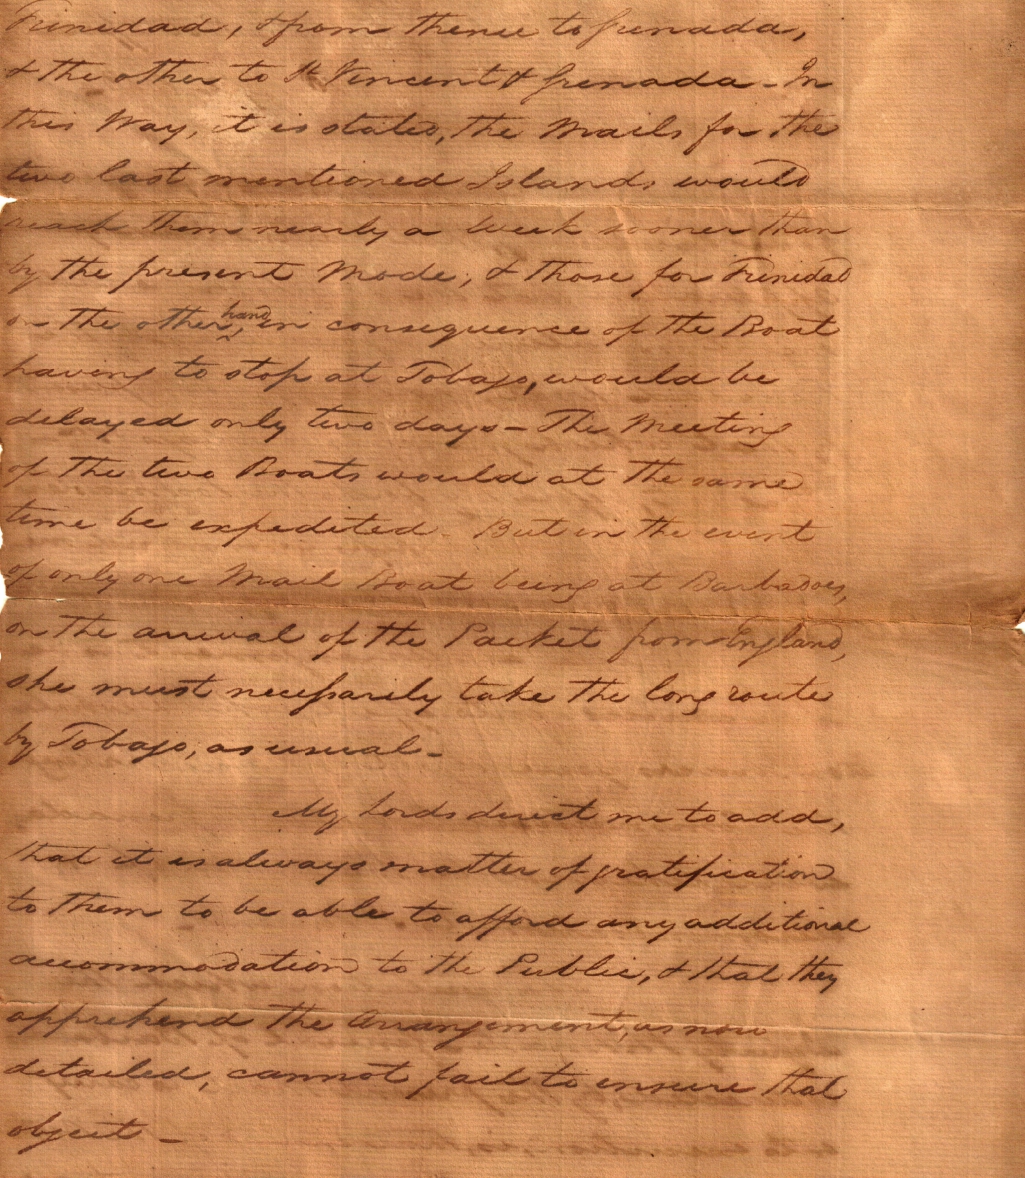 Trinidad, & from thence to Grenada,
& the other to St Vincent & Grenada - In
this Way, it is stated, the Mails for the
two last mentioned Islands would
reach them nearly a Week sooner than
by the present Mode, & those for Trinidad
on the other hand, in consequence of the Boat
having to stop at Tobago, would be
delayed only two days - The Meeting
of the two Boats would at the same
time be expedited. But in the event
of only one Mail Boat being at Barbadoes,
on the arrival of the Packet from England,
she must necessarily take the long route
by Tobago, as usual -
My Lords direct me to add,
that it is always matter of gratification
to them to be able to afford any additional
accommodation to the Public, & that they
apprehend the Arrangement, as now
detailed, cannot fail to ensure that
object -